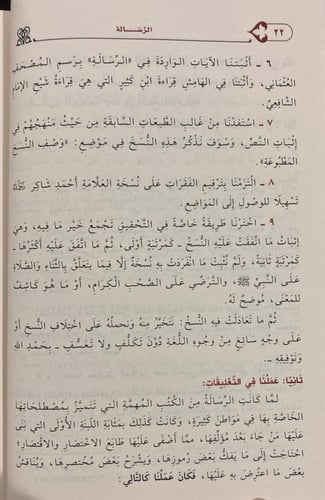 ٢٢
الرِّسَالة
٦ - أَثْبَتنَا الآيَاتِ الوَارِدَةَ فِي «الرِّسَالَةِ» بِرَسمِ المُصْحَفِ
العُثْمَانِي، وَأَثْبَتنَا فِي الهَامِشِ قِرَاءَةَ ابْنِ كَثِيرٍ التي هِيَ قِرَاءَةُ شَيْخِ الإِمَامِ
الشَّافِعِيِّ.
٧ - اسْتَفَدْنَا مِنْ غَالِبِ الطَّبعَاتِ السَّابِقَةِ مِن حَيثُ مَنْهَجُهُمْ فِي
إِثْبَاتِ النَّصِّ، وَسَوْفَ نَذكُرُ هَذِهِ النُّسَخَ فِي مَوْضِعِ: «وَصْفِ النُّسَخِ
المَطْبُوعَةِ».
٨ - الْتَزَمْنَا بِتَرقِيمِ الفَقَرَاتِ عَلَى نُسْخَةِ العَلَّامَةِ أَحْمَدَ شَاكِر رَحِمَهُ اللَّهُ
تَسْهِيلًا لِلوُصُولِ إِلَى المَوَاضِعِ.
٩ - اخْتَرْنَا طَرِيقَةً خَاصَّةً فِي التَّحْقِيقِ تَجْمَعُ خَيرَ مَا فِيهِ، وَهِيَ
إِثبَاتُ مَا اتَّفَقَتْ عَلَيْهِ النُّسَخُ - كَمَرتَبَةٍ أُوْلَى، ثُمَّ مَا اتَّفَقَ عَلَيْهِ أَكْثَرُهَا -
كَمَرتَبَةٍ ثَانِيَة، وَلَمْ نُثْبِتْ مَا انْفَرَدَتْ بِهِ نُسْخَةٌ إِلَّا فِيمَا يَتَعَلَّقُ بِالثَّنَاءِ وَالصَّلَاةِ
عَلَى النَّبِيِّ ﷺ، وَالتَّرَضِّي عَلَى الصَّحْبِ الكِرَامِ، أَوْ مَا هُوَ كَاشِفٌ
لِلمَعْنَى، مُوضِحٌ لَهُ.
ثُمَّ مَا تَعَادَلَتْ فِيهِ النُّسَخُ: نَتَخَيَّرُ مِنهُ وَنحمِلُهُ عَلَى اخْتِلَافِ النُّسَخِ أَوْ
عَلَى وَجْهٍ سَائِغٍ مِنْ وُجُوهِ اللُّغَةِ دُوْنَ تَكَلُّفٍ وَلَا تَعَسُّفٍ ـ بِحَمْدِ اللهِ
وَتَوْفِيقِهِ ـ.
ثَانِيًا: عَمَلُنَا فِي التَّعْلِيقَاتِ:
لَمَّا كَانَتِ الرِّسَالَةُ مِنَ الكُتُبِ المُهِمَّةِ التي تَتَمَيَّزُ بِمُصْطَلَحَاتِهَا
الخَاصَّةِ بِهَا فِي مَوَاطِنَ كَثِيرَةٍ، وَكَانَتْ كَذَلِكَ بِمَثَابَةِ اللَّبِنَةِ الأُوْلَى الَّتِي بَنَى
عَلَيْهَا مَنْ جَاءَ بَعْدَ مُؤَلِّفِهَا، مِمَّا أَضْفَى عَلَيْهَا طَابَعَ الاخْتِصَارِ وَالاقْتِصَارِ؛
احْتَاجَتْ إِلَى مَا يَفُكُّ بَعْضَ رُمُوزِهَا، وَيشْرَحُ بَعْضَ مُخْتَصَرِهَا، وَيُنَاقِشُ
بَعْضَ مَا اعتُرِضَ بِهِ عَلَيْهَا، فَكَانَ عَمَلُنَا كَالتَّالِي: